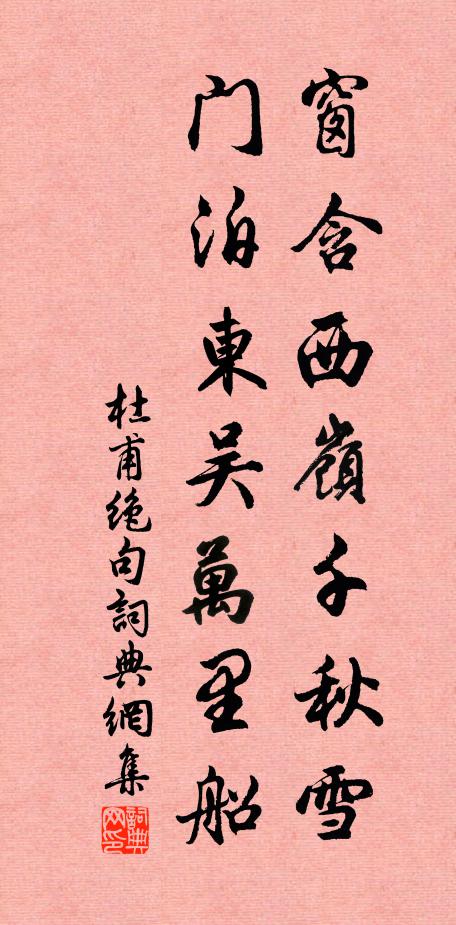 窗含西嶺千秋雪
门泊東吴萬里船
杜甫绝句詞典網集
詞典网印